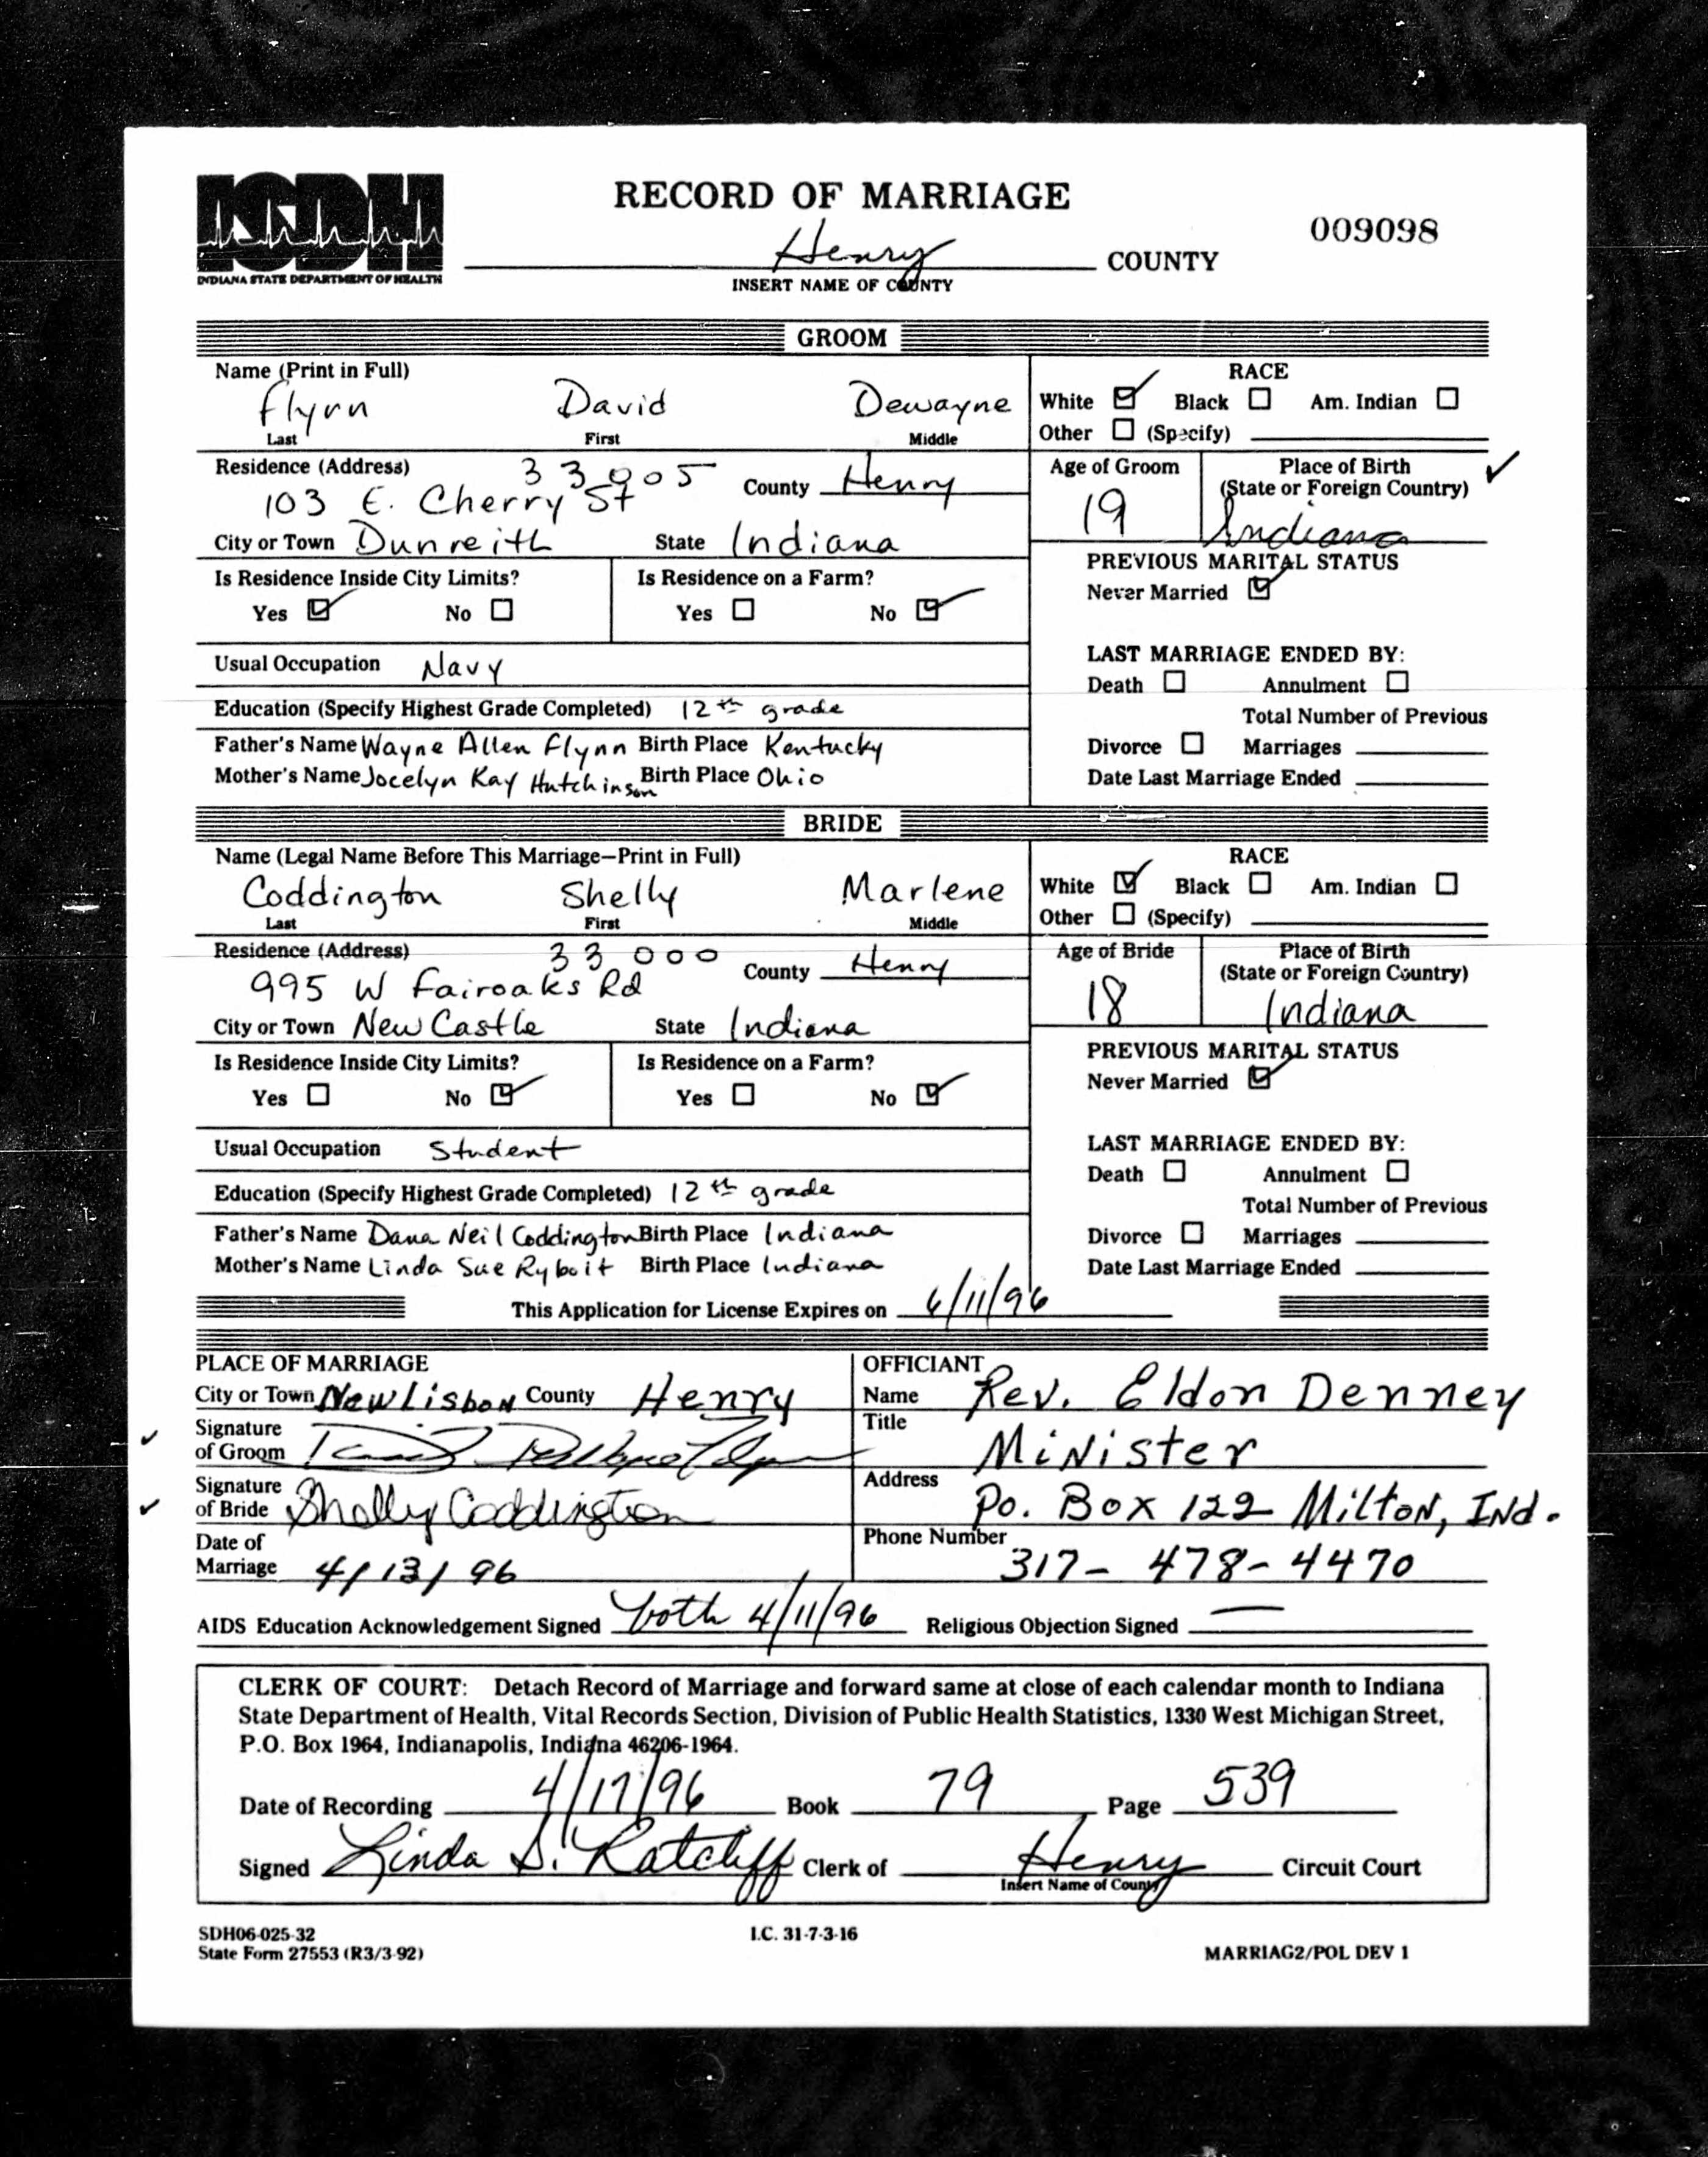 ISDH
INDIANA STATE DEPARTMENT OF HEALTH
RECORD OF MARRIAGE
009098
Henry COUNTY
INSERT NAME OF COUNTY
GROOM
Name (Print in Full)
Flynn David Dewayne
Last First Middle
RACE
White Black Am. Indian
Other (Specify)
Residence (Address) 33005 County Henry
103 E. Cherry St
City or Town Dunreith State Indiana
Age of Groom
19
Place of Birth
(State or Foreign Country)
Indiana
Is Residence Inside City Limits? Is Residence on a Farm?
Yes No Yes No
PREVIOUS MARITAL STATUS
Never Married
Usual Occupation Navy
Education (Specify Highest Grade Completed) 12th grade
Father's Name Wayne Allen Flynn Birth Place Kentucky
Mother's Name Jocelyn Kay Hutchinson Birth Place Ohio
LAST MARRIAGE ENDED BY:
Death Annulment
Total Number of Previous
Divorce Marriages
Date Last Marriage Ended
BRIDE
Name (Legal Name Before This Marriage-Print in Full)
Coddington Shelly Marlene
Last First Middle
RACE
White Black Am. Indian
Other (Specify)
Residence (Address) 33000 County Henry
995 W Fairoaks Rd
City or Town New Castle State Indiana
Age of Bride
18
Place of Birth
(State or Foreign Country)
Indiana
Is Residence Inside City Limits? Is Residence on a Farm?
Yes No Yes No
PREVIOUS MARITAL STATUS
Never Married
Usual Occupation Student
Education (Specify Highest Grade Completed) 12th grade
Father's Name Dana Neil Coddington Birth Place Indiana
Mother's Name Linda Sue Ryboit Birth Place Indiana
LAST MARRIAGE ENDED BY:
Death Annulment
Total Number of Previous
Divorce Marriages
Date Last Marriage Ended
This Application for License Expires on 6/11/96
PLACE OF MARRIAGE
City or Town New Lisbon County Henry
Signature
of Groom David
Signature
of Bride Shelly Coddington
Date of
Marriage 4/13/96
OFFICIANT
Name Rev. Eldon Denney
Title
Minister
Address
Po. Box 122 Milton, Ind.
Phone Number
317-478-4470
AIDS Education Acknowledgement Signed both 4/11/96 Religious Objection Signed —
CLERK OF COURT: Detach Record of Marriage and forward same at close of each calendar month to Indiana
State Department of Health, Vital Records Section, Division of Public Health Statistics, 1330 West Michigan Street,
P.O. Box 1964, Indianapolis, Indiana 46206-1964.
Date of Recording 4/17/96 Book 79 Page 539
Signed Linda S. Ratcliff Clerk of Henry Circuit Court
Insert Name of County
SDH06-025-32 I.C. 31-7-3-16
State Form 27553 (R3/3-92) MARRIAG2/POL DEV 1